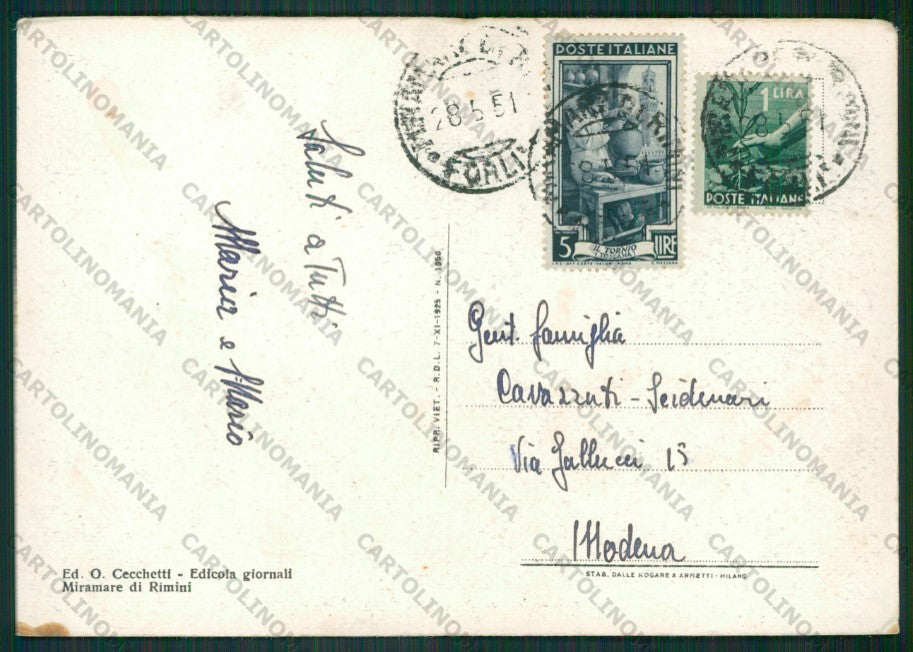 Saluti a Tutti
Maria e Mario
Ed. O. Cecchetti - Edicola giornali
Miramare di Rimini
RIPR. VIET. - R.D.L. 7-XI-1925 - N. 1950
MIRAMARE DI RIMINI
28.5.51
FORLI
POSTE ITALIANE
5 LIRE
IL TORNIO
TOSCANA
1 LIRA
POSTE ITALIANE
Gent. famiglia
Cavazzuti - Seidenari
Via Gallucci 15
Modena
STAB. DALLE NOGARE & ARMETTI - MILANO
CARTOLINOMANIA